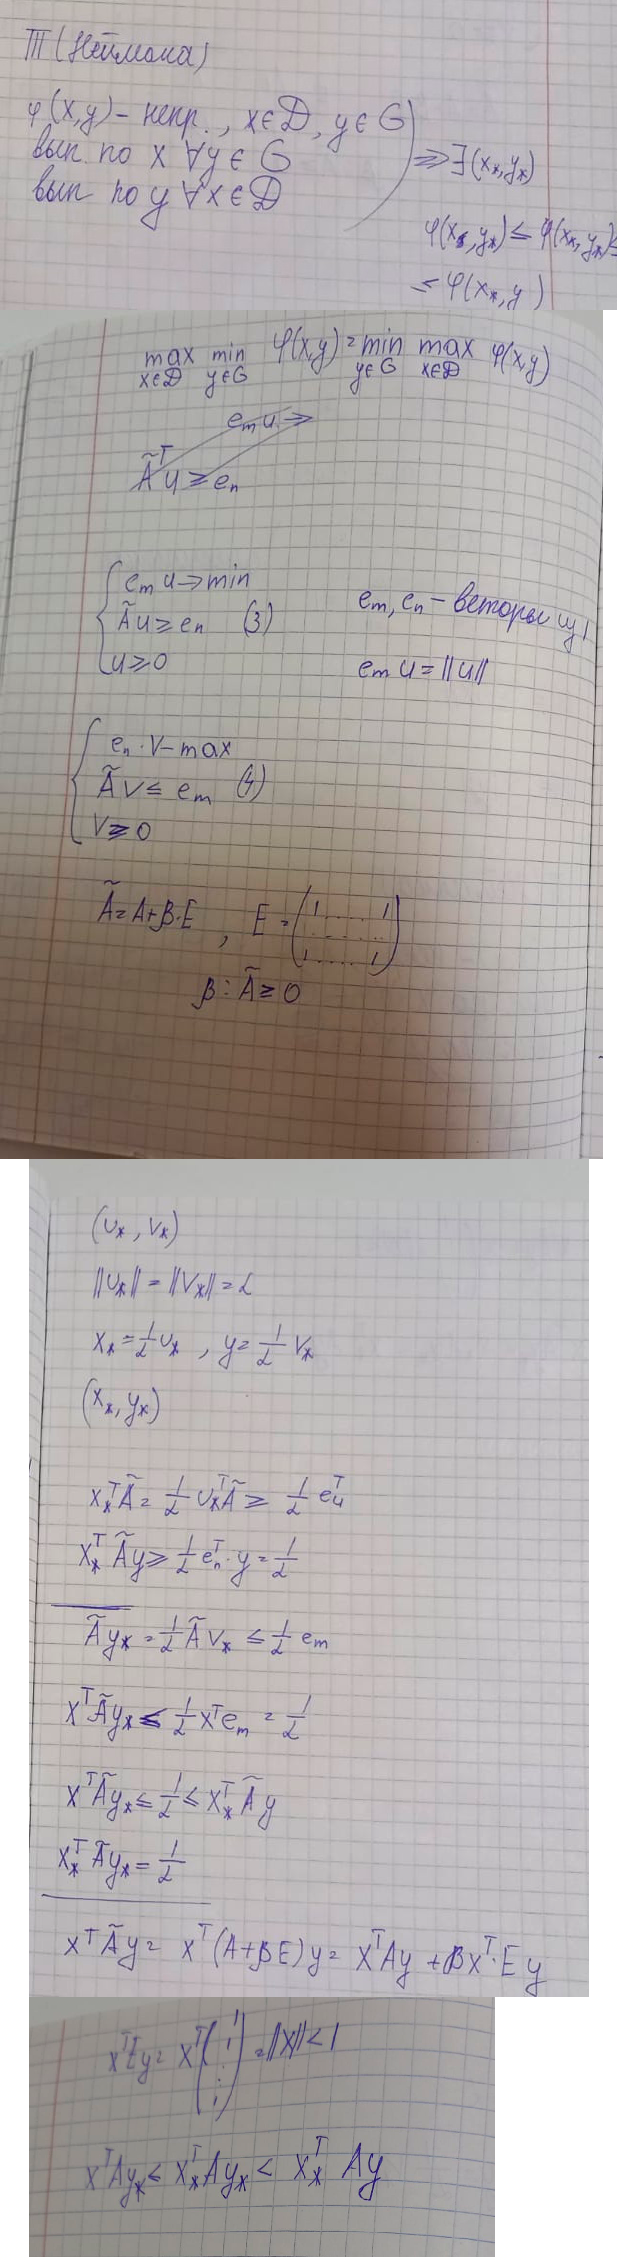 Т (Неймана)
φ(x,y) – непр., x∈D, y∈G
вып. по x ∀y∈G
вып по y ∀x∈D
⇒ ∃(x*,y*)
φ(x*,y*) ≤ φ(x*,y*) ≤
≤ φ(x*,y)
max min φ(x,y) = min max φ(x,y)
x∈D y∈G y∈G x∈D
eₘu →
Ãᵀu ≥ eₙ
eₘu → min
Ãu ≥ eₙ (3)
u ≥ 0
eₘ, eₙ – векторы из 1
eₘu = ||u||
eₙ·V – max
ÃV ≤ eₘ (4)
V ≥ 0
Ã = A + β·E, E = (1 .... 1 ..... 1 .... 1)
β: Ã ≥ 0
(u*, v*)
||u*|| = ||V*|| = α
x* = 1/α u*, y = 1/α V*
(x*, y*)
x*ᵀÃ = 1/α u*ᵀÃ ≥ 1/α eᵀₙ
x*ᵀÃy ≥ 1/α eₙᵀ·y = 1/α
Ãy* = 1/α ÃV* ≤ 1/α eₘ
xᵀÃy* ≤ 1/α xᵀeₘ = 1/α
xᵀÃy* ≤ 1/α ≤ x*ᵀÃy
x*ᵀÃy* = 1/α
xᵀÃy = xᵀ(A+βE)y = xᵀAy + βxᵀ·Ey
xᵀEy = xᵀ(1 1 : 1) = ||x|| < 1
xᵀAy* ≤ x*ᵀAy* < x*ᵀ Ay